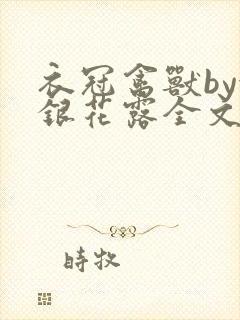 衣冠禽獸by
銀花露全文
時牧